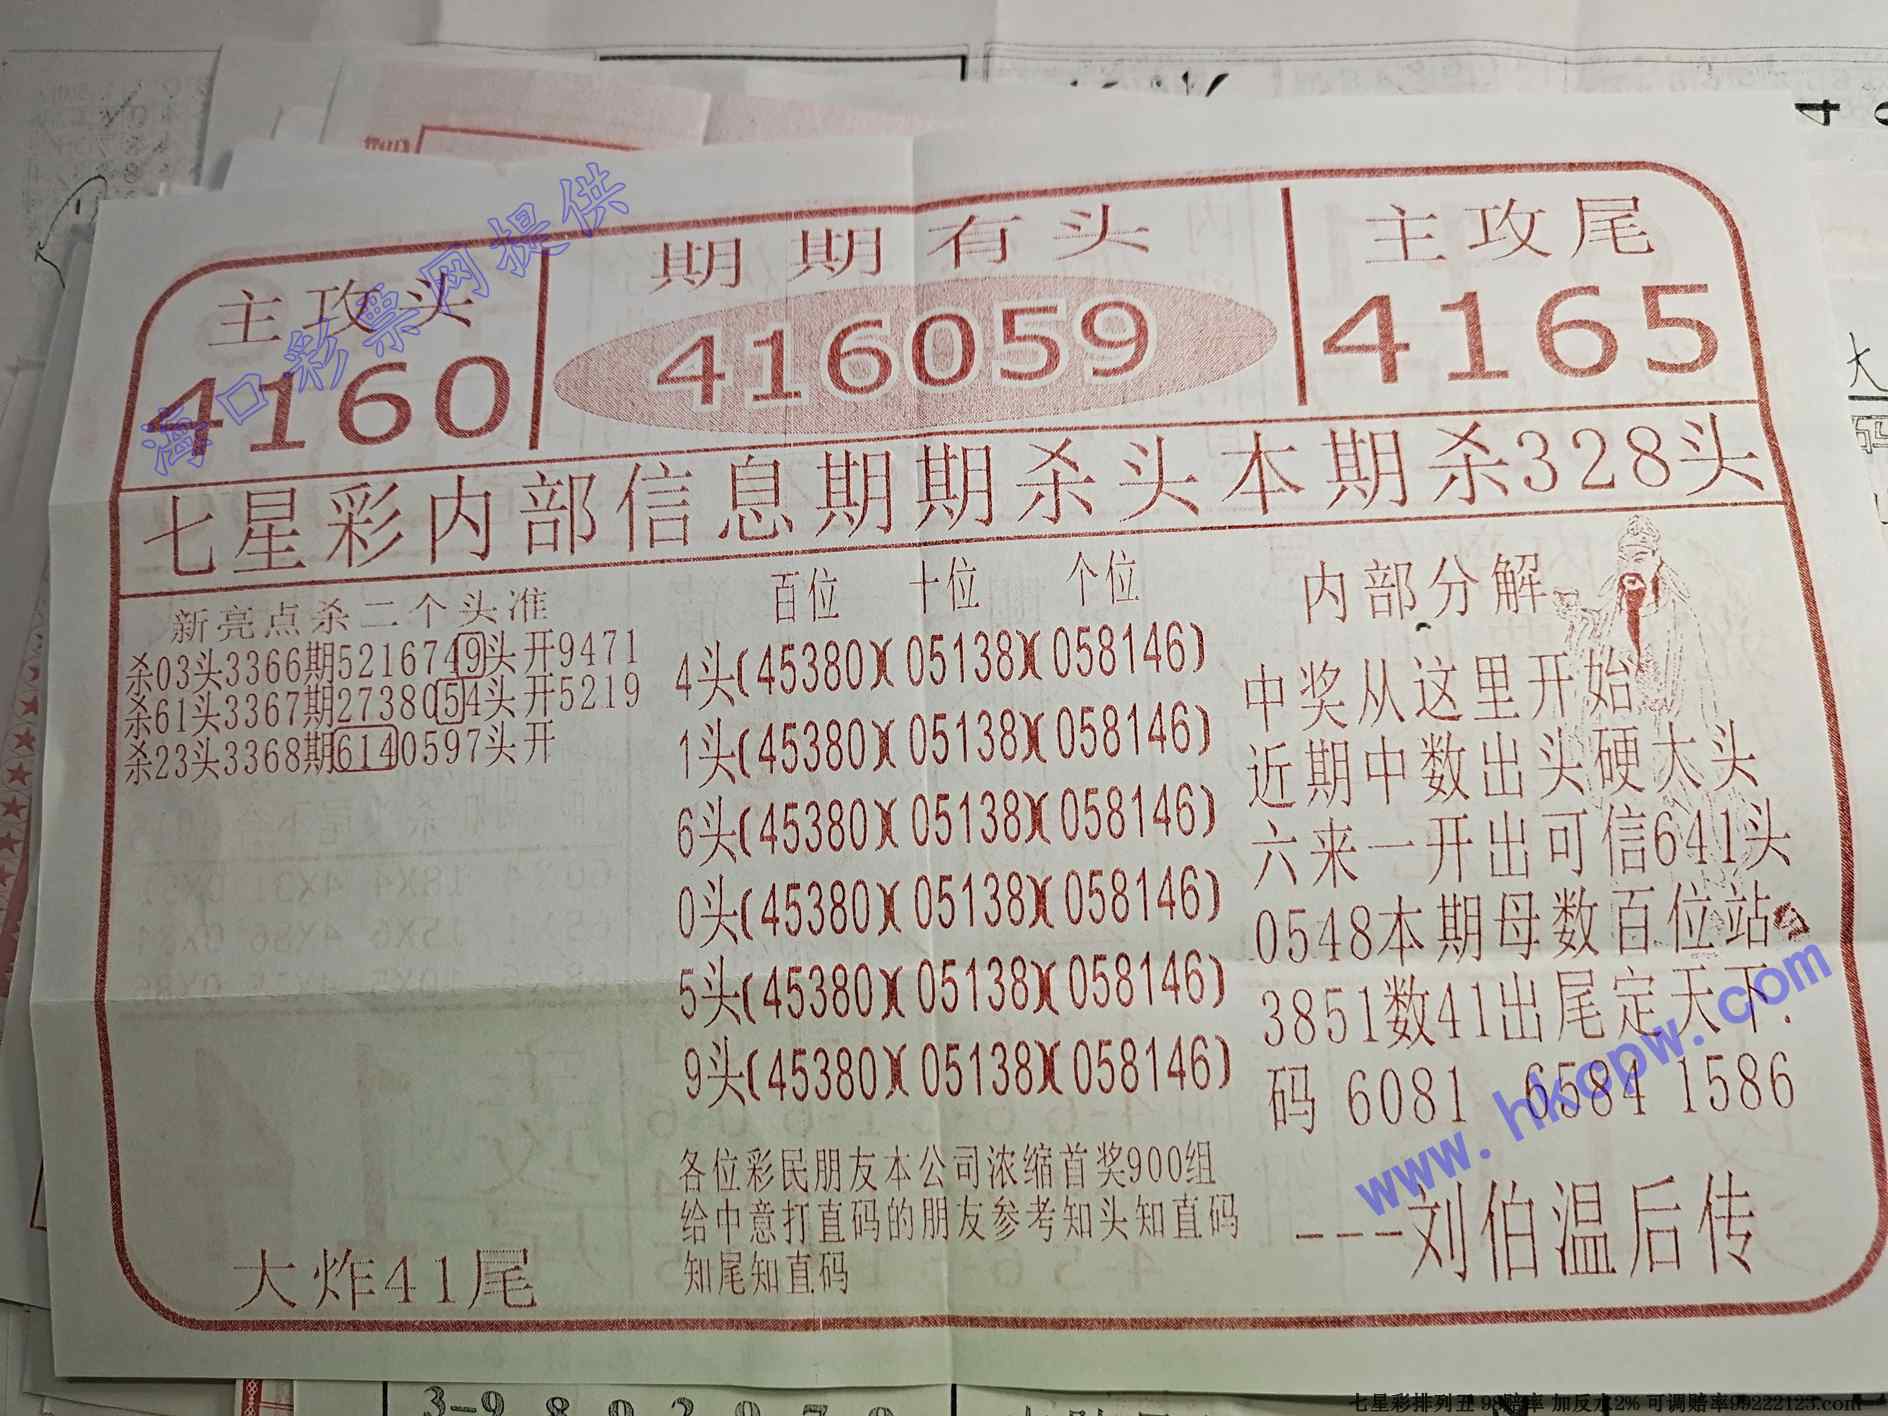 主攻头
4160
期期有头
416059
主攻尾
4165
七星彩内部信息期期杀头本期杀328头
新亮点杀二个头准
杀03头3366期5216749头开9471
杀61头3367期2738054头开5219
杀23头3368期6140597头开
大炸41尾
百位 十位 个位
4头(45380)(05138)(058146)
1头(45380)(05138)(058146)
6头(45380)(05138)(058146)
0头(45380)(05138)(058146)
5头(45380)(05138)(058146)
9头(45380)(05138)(058146)
各位彩民朋友本公司浓缩首奖900组
给中意打直码的朋友参考知头知直码
知尾知直码
内部分解
中奖从这里开始
近期中数出头硬大头
六来一开出可信641头
0548本期母数百位站
3851数41出尾定天下.
码 6081 6584 1586
---刘伯温后传
海口彩票网提供
www.hkcpw.com
七星彩排列五 98赔率 加反水2% 可调赔率99222123.com